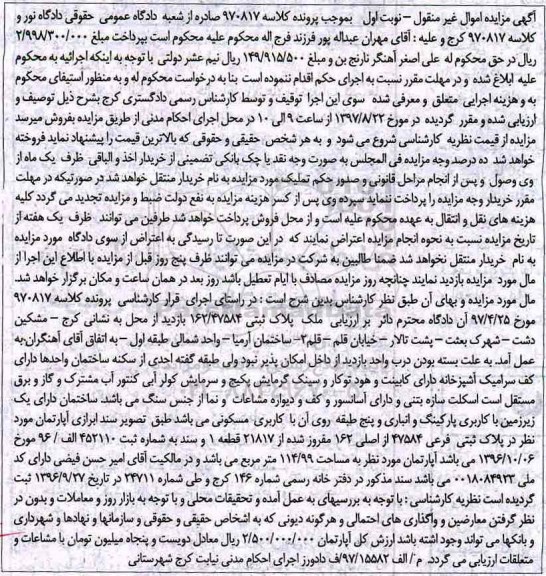 آگهی مزایده اموال غیر منقول – نوبت اول    بموجب پرونده کلاسه ۹۷۰۸۱۷ صادره از شعبه دادگاه عمومی حقوقی دادگاه نور و
کلاسه ۹۷۰۸۱۷ کرج و علیه : آقای مهران عبداله پور فرزند فرج اله محکوم علیه محکوم است بپرداخت مبلغ ۲/۹۹۸/۳۰۰/۰۰۰
ریال در حق محکوم له علی اصغر آهنگر نارنج بن و مبلغ ۱۴۹/۹۱۵/۵۰۰ ریال نیم عشر دولتی با توجه به اینکه اجرائیه به محکوم
علیه ابلاغ شده و در مهلت مقرر نسبت به اجرای حکم اقدام ننموده است بنا به درخواست محکوم له و به منظور استیفای محکوم
به و هزینه اجرایی متعلق و معرفی شده سوی این اجرا توقیف و توسط کارشناس رسمی دادگستری کرج بشرح ذیل توصیف و
ارزیابی شده و مقرر گردیده در مورخ ۱۳۹۷/۸/۲۲ از ساعت ۹ الی ۱۰ در محل اجرای احکام مدنی از طریق مزایده بفروش میرسد
مزایده از قیمت نظریه کارشناسی شروع می شود و به هر شخص حقیقی و حقوقی که بالاترین قیمت را پیشنهاد نماید فروخته
خواهد شد ده درصد وجه مزایده فی المجلس به صورت وجه نقد یا چک بانکی تضمینی از خریدار اخذ و الباقی ظرف یک ماه از
وی وصول و پس از انجام مراحل قانونی و صدور حکم تملیک مورد مزایده به نام خریدار منتقل خواهد شد در صورتیکه در مهلت
مقرر خریدار وجه مزایده را پرداخت ننماید سپرده وی پس از کسر هزینه مزایده به نفع دولت ضبط و مزایده تجدید می گردد کلیه
هزینه های نقل و انتقال به عهده محکوم علیه است و از محل فروش پرداخت خواهد شد طرفین می توانند ظرف یک هفته از
تاریخ مزایده نسبت به نحوه انجام مزایده اعتراض نمایند که در این صورت تا رسیدگی به اعتراض از سوی دادگاه مورد مزایده
به نام خریدار منتقل نخواهد شد ضمنا طالبین به شرکت در مزایده می توانند ظرف پنج روز قبل از مزایده با اطلاع این اجرا از
مال مورد مزایده بازدید نمایند چنانچه روز مزایده مصادف با ایام تعطیل باشد روز بعد در همان ساعت و مکان برگزار خواهد شد.
مال مورد مزایده و بهای آن طبق نظر کارشناس بدین شرح است : در راستای اجرای قرار کارشناسی پرونده کلاسه ۹۷۰۸۱۷
مورخ ۹۷/۴/۲۵ آن دادگاه محترم دائر بر ارزیابی ملک پلاک ثبتی ۱۶۲/۴۷۵۸۴ بازدید از محل به نشانی کرج – مشکین
دشت – شهرک بعثت – پشت تالار – خیابان قلم – قلم۲ – ساختمان آرمیا – واحد شمالی طبقه اول – به اتفاق آقای آهنگران،به
عمل آمد. به علت بسته بودن درب واحد بازدید از داخل امکان پذیر نبود ولی طبقه گفته احدی از سکنه ساختمان واحدها دارای
کف سرامیک آشپزخانه دارای کابینت و هود توکار و سینک گرمایش پکیج و سرمایش کولر آبی کنتور آب مشترک و گاز و برق
مستقل است اسکلت سازه بتنی و دارای آسانسور و کف و دیواره مشاعات و نما از جنس سنگ می باشد. ساختمان دارای یک
زیرزمین با کاربری پارکینگ و انباری و پنج طبقه روی آن با کاربری مسکونی می باشد طبق تصویر سند ابرازی آپارتمان مورد
نظر در پلاک ثبتی فرعی ۴۷۵۸۴ از اصلی ۱۶۲ مفروز شده از ۲۱۸۱۷ قطعه ۱ و سند به شماره ثبت ۴۵۲۱۱۰ الف / ۹۶ مورخ
۱۳۹۶/۱۰/۰۶ می باشد آپارتمان مورد نظر به مساحت ۱۱۴/۹۹ متر مربع می باشد و در مالکیت آقای امیر حسن فیضی دارای کد
ملی ۰۰۱۸۰۸۴۹۲۳ می باشد سند مذکور در دفتر خانه رسمی شماره ۱۴۶ کرج و طی شماره ۲۴۷۱۱ در تاریخ ۱۳۹۶/۹/۲۷ ثبت
گردیده است نظریه کارشناسی : با توجه به بررسیهای به عمل آمده و تحقیقات محلی و با توجه به بازار روز و معاملات و بدون در
نظر گرفتن معارضین و واگذاری های احتمالی و هرگونه دیونی که به اشخاص حقیقی و حقوقی و سازمانها و نهادها و شهرداری
و بانکها می تواند وجود اشته باشد ارزش کل آپارتمان ۲/۵۰۰/۰۰۰/۰۰۰ ریال معادل دویست و پنجاه میلیون تومان با مشاعات و
متعلقات ارزیابی می گردد. م / الف ۹۷/۱۵۵۸۲/ف دادورز اجرای احکام مدنی نیابت کرج شهرستانی